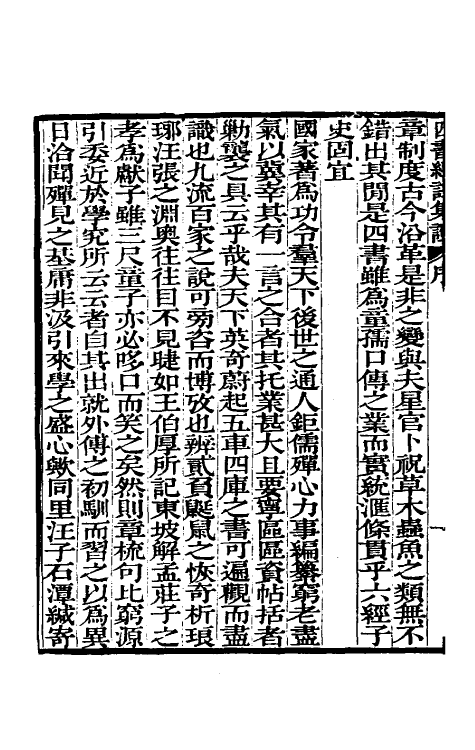 四書經註集證 序
章制度古今沿革是非之變與夫星官卜祝草木蟲魚之類無不
錯出其閒是四書雖為童孺口傳之業而實統滙條貫乎六經子
史固宜
國家著為功令羣天下後世之通人鉅儒殫心力事編纂窮老盡
氣以冀幸其有一言之合者其托業甚大且要寧區區資帖括者
勦襲之具云乎哉夫天下英奇蔚起五車四庫之書可遍觀而盡
識也九流百家之說可旁咨而博攷也辨貳負鼮鼠之恢奇析琅
琊汪張之淵奧往往目不見睫如王伯厚所記東坡解孟莊子之
孝為獻子雖三尺童子亦必哆口而笑之矣然則章梳句比窮源
引委近於學究所云云者自其出就外傅之初馴而習之以為異
日洽聞殫見之基庸非汲引來學之盛心歟同里汪子石潭緘寄